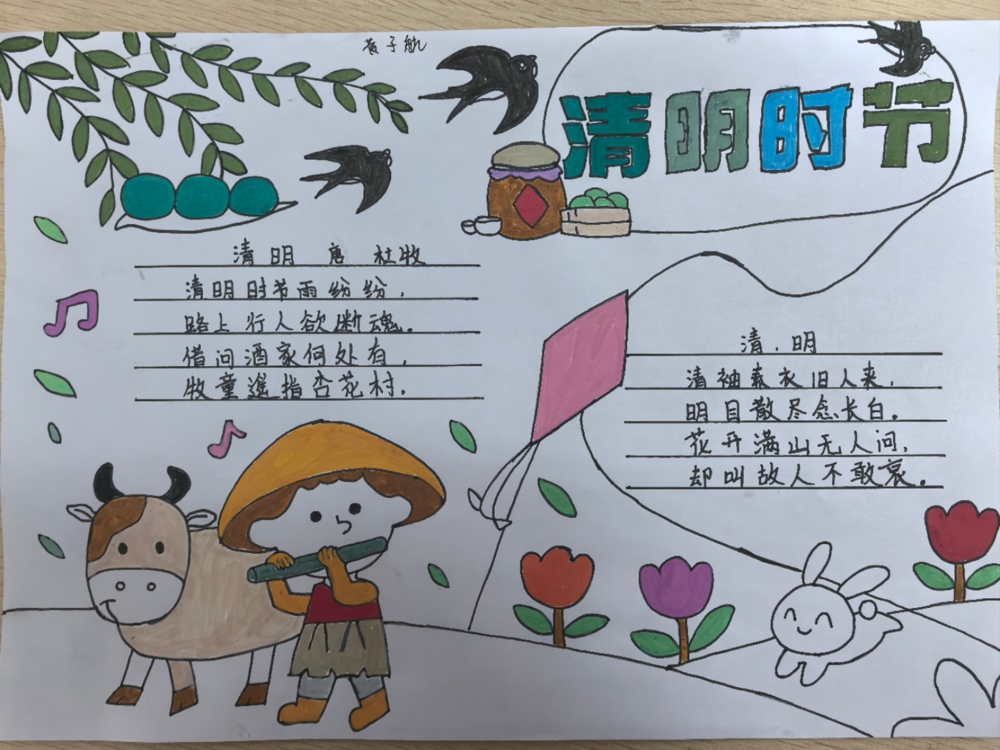 黄子航
清明时节
清明 唐 杜牧
清明时节雨纷纷，
路上行人欲断魂。
借问酒家何处有，
牧童遥指杏花村。
清.明
清袖素衣旧人来，
明目散尽念长白。
花开满山无人问，
却叫故人不敢哀。